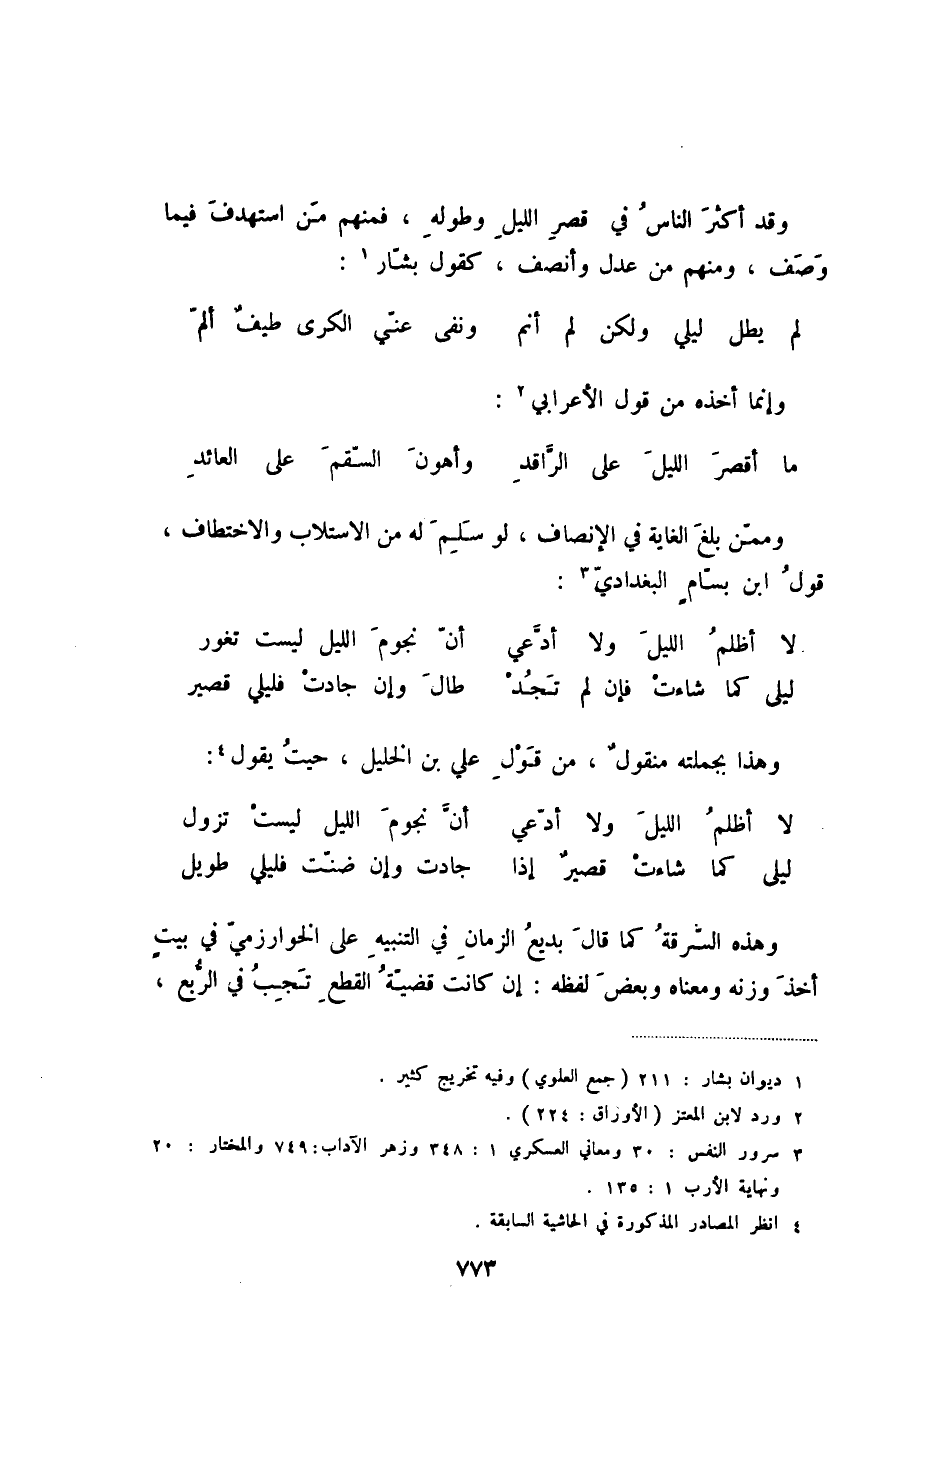 وقد أكثرَ الناسُ في قصرِ الليلِ وطولهِ ، فمنهم مَن استهدفَ فيما
وَصَف ، ومنهم من عدل وأنصف ، كقول بشّار١ :
لم يطل ليلي ولكن لم أنم ونفى عنّي الكرى طيفٌ ألمّ
وإنما أخذه من قول الأعرابي٢ :
ما أقصرَ الليلَ على الرَّاقدِ وأهونَ السّقمَ على العائدِ
وممّن بلغَ الغاية في الإنصاف ، لو سَلِمَ له من الاستلاب والاختطاف ،
قولُ ابن بسّامٍ البغداديّ٣ :
لا أظلمُ الليلَ ولا أدَّعي أنّ نجومَ الليل ليست تغور
ليلى كما شاءتْ فإن لم تَجُدْ طالَ وإن جادتْ فليلي قصير
وهذا بجملته منقولٌ ، من قَوْلِ علي بن الخليل ، حيثُ يقول٤ :
لا أظلمُ الليلَ ولا أدّعي أنَّ نجومَ الليل ليستْ تزول
ليلى كما شاءتْ قصيرٌ إذا جادت وإن ضنّت فليلي طويل
وهذه السّرقةُ كما قالَ بديعُ الزمانِ في التنبيهِ على الخوارزميّ في بيتٍ
أخذَ وزنه ومعناه وبعضَ لفظه : إن كانت قضيّةُ القطعِ تَجِبُ في الرُّبع ،
١ ديوان بشار : ٢١١ (جمع العلوي) وفيه تخريج كثير .
٢ ورد لابن المعتز (الأوراق : ٢٢٤) .
٣ سرور النفس : ٣٠ ومعاني العسكري ١ : ٣٤٨ وزهر الآداب: ٧٤٩ والمختار : ٢٠
ونهاية الأرب ١ : ١٣٥ .
٤ انظر المصادر المذكورة في الحاشية السابقة .
٧٧٣